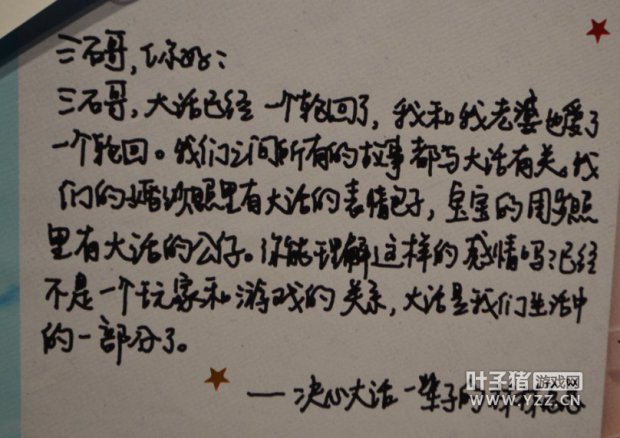 三石哥，你好：
三石哥，大话已经一个轮回了，我和我老婆也爱了
一个轮回。我们之间所有的故事都与大话有关。我
们的婚纱照里有大话的表情包子，宝宝的周岁照
里有大话的公仔。你能理解这样的感情吗？已经
不是一个玩家和游戏的关系，大话是我们生活中
的一部分了。
——决心大话一辈子的
叶子猪游戏网
WWW.YZZ.CN